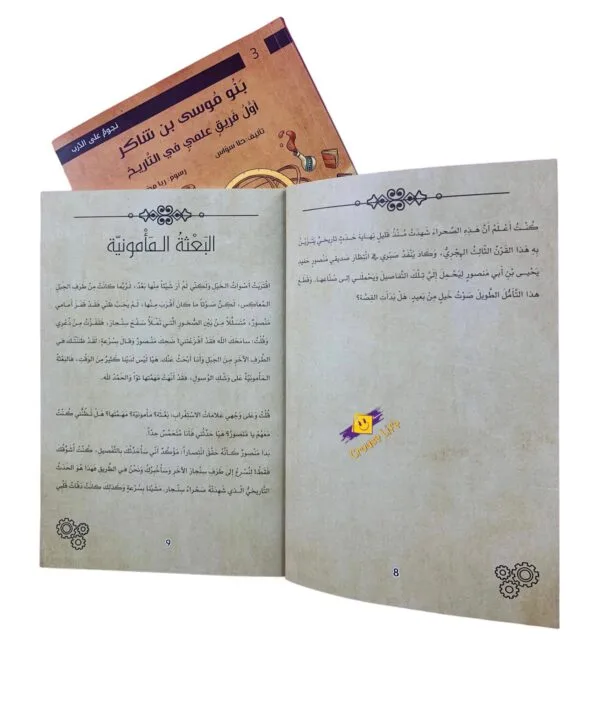 3
بَنُو مُوسى بن شاكر
أوّلُ فَريقٍ علمي في التّاريخ
نجومٌ على الدّرب
تأليف: حلا سوّاس
رسوم: ربا
كُنْتُ أعْلَمُ أنَّ هَذِهِ الصَّحراءَ شَهِدَتْ مُنْذُ قَليلٍ نِهايَةَ حَدَثٍ تاريخيٍّ يَتَزَيَّنُ
بِهِ هذا القَرْنُ الثّالِثُ الهِجْريُّ، وكادَ يَنْفَدُ صَبْري في انْتِظارِ صَديقي مَنصورٍ حَفيدِ
يَحيَى بْنِ أبي مَنصورٍ لِيَحْمِلَ إليَّ تِلْكَ التَّفاصيلَ ويَحْمِلَني إلى صُنّاعِها. وقَطَعَ
هذا التّأمُّلَ الطَّويلَ صَوْتُ خَيلٍ مِنْ بَعيدٍ. هَلْ بَدَأتِ القِصَّة؟
Choose Life
8
البَعْثةُ المَأمونيّة
اقتَرَبَتْ أصْواتُ الخَيْلِ ولكِنّي لَمْ أرَ شَيْئًا مِنْها بَعْدُ، لَرُبَّما كانَتْ مِن طَرَفِ الجَبَلِ
المُعاكِسِ، لَكِنَّ صَوْتًا ما كانَ أقرَبَ مِنْها، لَمْ يَخِبْ ظَنّي فَقَدْ قَفَزَ أمامي
مَنْصورٌ، مُتَسَلِّلًا مِنْ بَيْنِ الصُّخورِ الّتي تَمْلأُ سَفْحَ سِنْجارَ، فَقَفَزْتُ مِنْ ذُعْري
وقُلْتُ: سامَحَكَ الله فَقَدْ أفْزَعْتَني! ضَحِكَ مَنْصورٌ وقالَ بِسُرْعَةٍ: لَقَدْ ظَنَنْتُكَ في
الطَّرَفِ الآخَرِ مِنَ الجَبَلِ وأنا أبْحَثُ عَنْكَ، هَيّا لَيْسَ لَدَيْنا كَثيرٌ مِنَ الوَقْتِ، فالبَعْثَةُ
المَأمونيّةُ عَلى وَشْكِ الوُصولِ، فَقَدْ أنْهَتْ مَهَمَّتَها تَوًّا والحَمْدُ لله.
قُلْتُ وعَلى وَجْهي عَلاماتُ الاسْتِغْرابِ: بَعْثَة؟ مأمونيّة؟ مَهَمَّتُها؟ هَلْ تَظُنُّني كُنْتُ
مَعَهُمْ يا مَنْصورُ؟ هَيّا حَدِّثْني فأنا مُتَحَمِّسٌ جِدًّا.
بَدا مَنْصورٌ كَأنَّهُ حَقَّقَ انْتِصارًا، مُؤكَّدٌ أنّي سأُحَدِّثُكَ بالتَّفْصيلِ، كُنْتُ أُشَوِّقُكَ
فَقَط! لِنُسْرِعْ إلى طَرَفِ سِنْجارَ الآخَرِ وسَأُخْبِرُكَ ونَحْنُ في الطَّريقِ فهذا هُوَ الحَدَثُ
التّاريخيُّ الّذي شَهِدَتْهُ صَحْراءُ سِنْجار. مَشَيْنا بِسُرْعَةٍ وكَذلِكَ كانَتْ دَقّاتُ قَلْبي
9